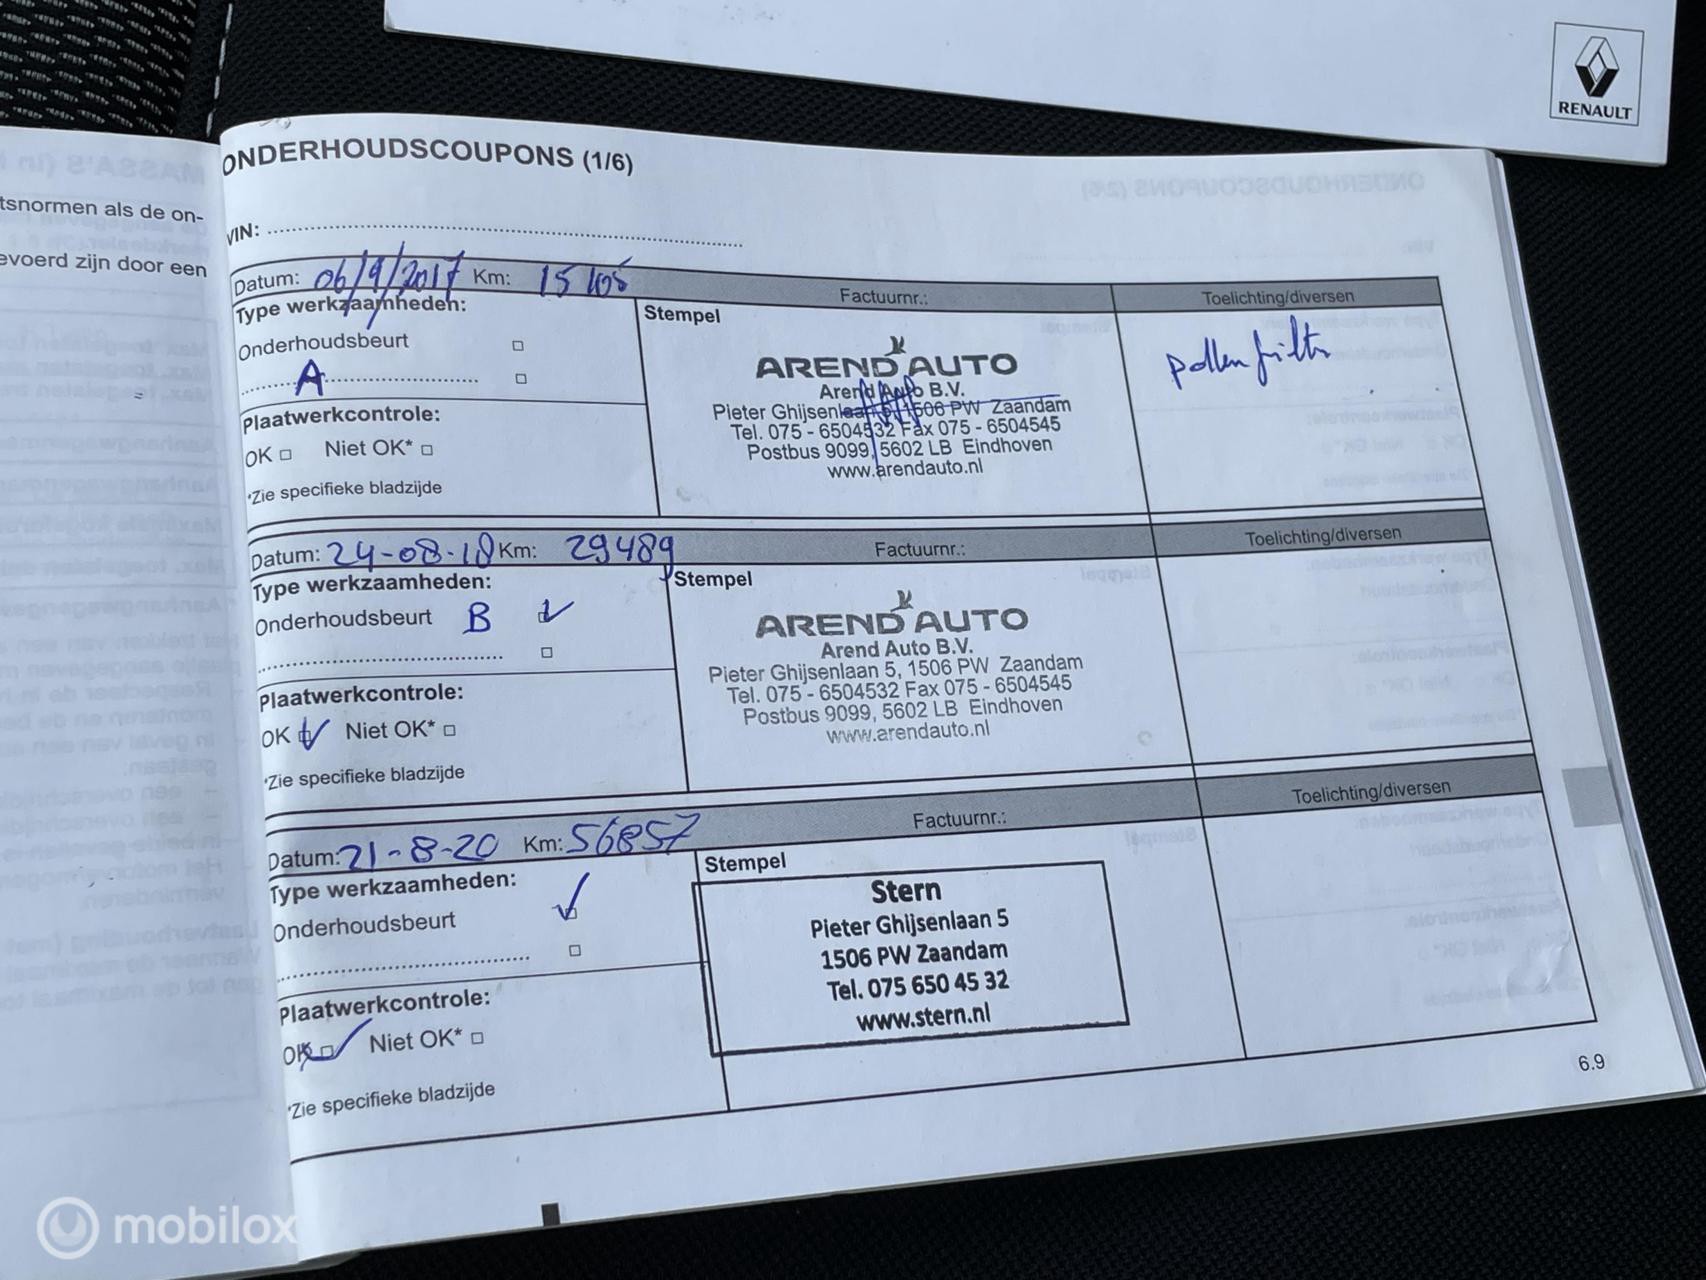 RENAULT
tsnormen als de on-
evoerd zijn door een
ONDERHOUDSCOUPONS (1/6)
VIN:
Datum: 06/9/2017 Km: 15 105 Factuurnr.: Toelichting/diversen
Type werkzaamheden: Stempel
Onderhoudsbeurt □
A □
pollenfilter
Plaatwerkcontrole:
OK □ Niet OK* □
*Zie specifieke bladzijde
AREND AUTO
Arend Auto B.V.
Pieter Ghijsenlaan 5, 1506 PW Zaandam
Tel. 075 - 6504532 Fax 075 - 6504545
Postbus 9099, 5602 LB Eindhoven
www.arendauto.nl
Datum: 24-08-18 Km: 29489 Factuurnr.: Toelichting/diversen
Type werkzaamheden: Stempel
Onderhoudsbeurt B
□
Plaatwerkcontrole:
OK Niet OK* □
*Zie specifieke bladzijde
AREND AUTO
Arend Auto B.V.
Pieter Ghijsenlaan 5, 1506 PW Zaandam
Tel. 075 - 6504532 Fax 075 - 6504545
Postbus 9099, 5602 LB Eindhoven
www.arendauto.nl
Datum: 21-8-20 Km: 56857 Factuurnr.: Toelichting/diversen
Type werkzaamheden: Stempel
Onderhoudsbeurt
□
Plaatwerkcontrole:
OK Niet OK* □
*Zie specifieke bladzijde
Stern
Pieter Ghijsenlaan 5
1506 PW Zaandam
Tel. 075 650 45 32
www.stern.nl
6.9
mobilox